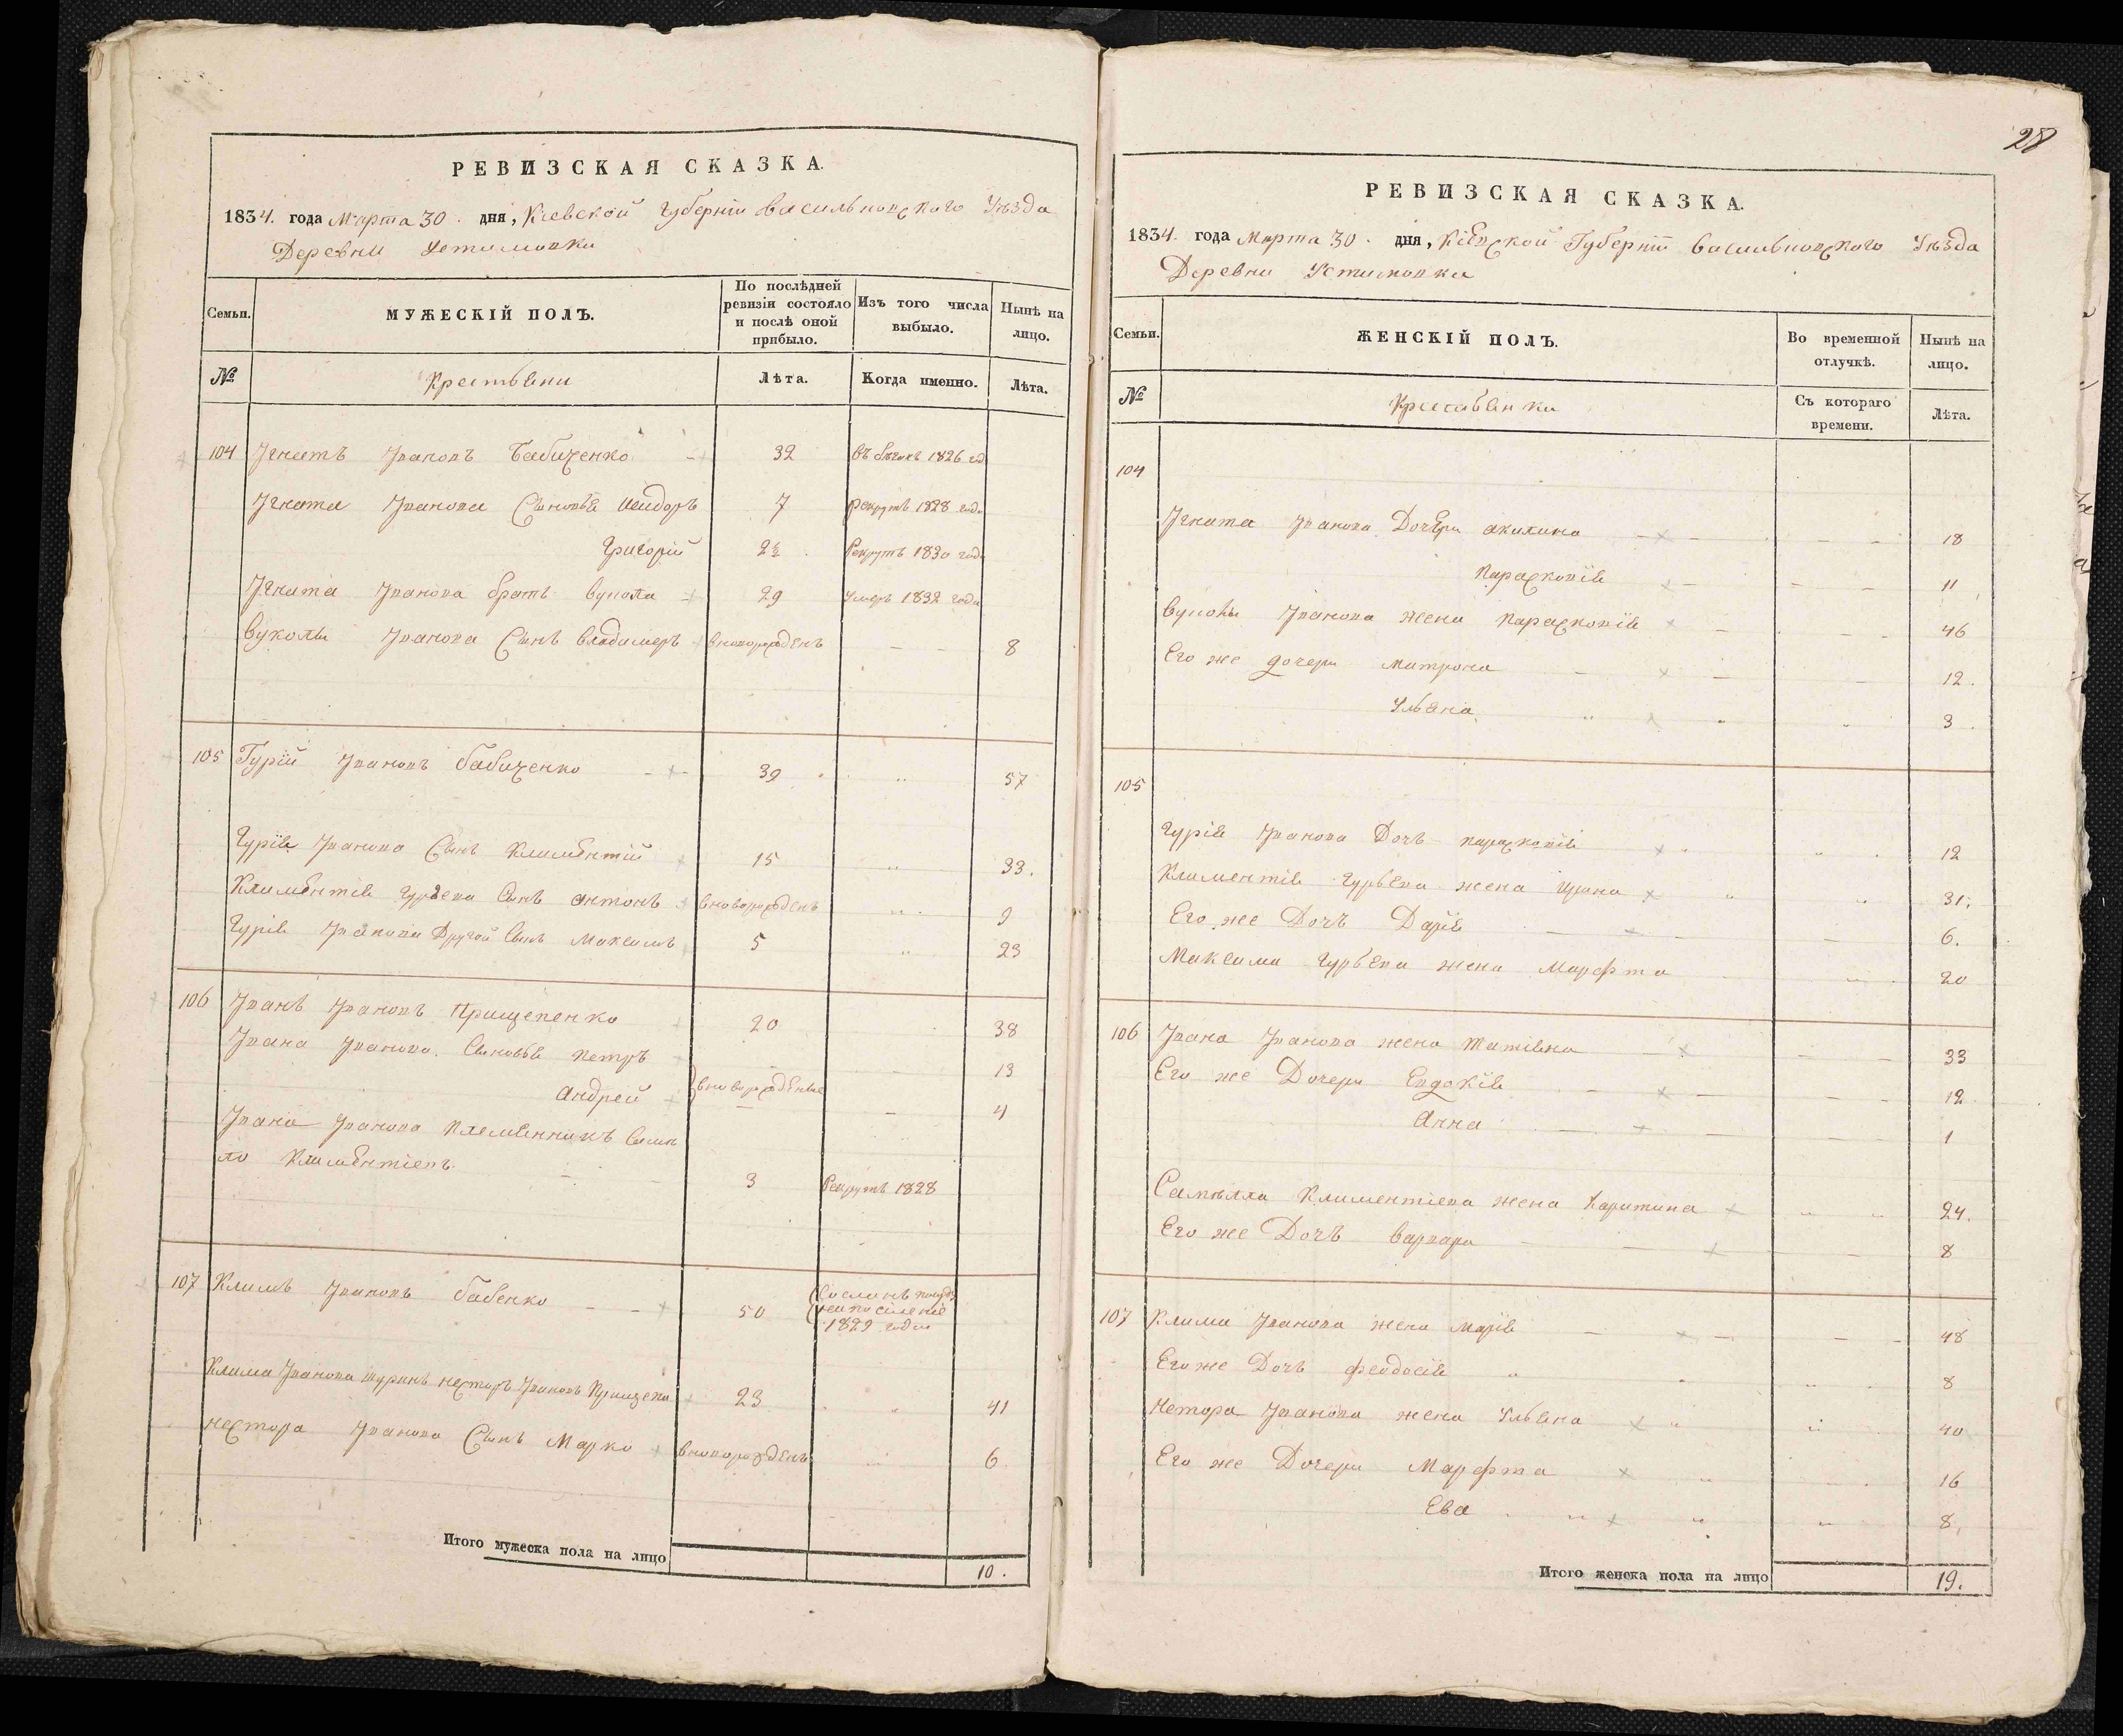 РЕВИЗСКАЯ СКАЗКА.
1834. года Марта 30. дня, Кіевской Губерніи Васильковскаго Уѣзда
Деревни Устимовки
Семьи. МУЖЕСКІЙ ПОЛЪ. По послѣдней ревизіи состояло и послѣ оной прибыло. Изъ того числа выбыло. Нынѣ на лицо.
№ Крестьяни Лѣта. Когда именно. Лѣта.
104 Игнатъ Ивановъ Бабиченко 32 въ бѣгахъ 1826 год
Игната Иванова Сыновья Исидоръ 7 рекрутъ 1828 года
Григорій 2½ Рекрутъ 1830 года
Игната Иванова братъ Вукола 29 умеръ 1832 года
Вуколы Иванова Сынъ Владимеръ вноворожденъ 8
105 Гурій Ивановъ Бабиченко 39 57
Гурія Иванова Сынъ Климентій 15 33.
Климентія Гурьева Сынъ Антонъ вноворожденъ 9
Гурія Иванова Другой Сынъ Максимъ 5 23
106 Иванъ Ивановъ Прищепенко 20 38
Ивана Иванова Сыновья Петръ 13
Андрей вноворожденые 4
Ивана Иванова племянникъ Самой
ло Климентіевъ 3 Рекрутъ 1828
107 Климъ Ивановъ Бабенко 50 Сосланъ
на поселеніе
1829 года
Клима Иванова шуринъ Несторъ Ивановъ Прищепа 23 41
Нестора Иванова Сынъ Марко вноворожденъ 6
Итого мужеска пола на лицо 10.
28
РЕВИЗСКАЯ СКАЗКА.
1834. года Марта 30. дня, Кіевской Губерніи Васильковскаго Уѣзда
Деревни Устимовки
Семьи. ЖЕНСКІЙ ПОЛЪ. Во временной отлучкѣ. Нынѣ на лицо.
№ Крестьянки Съ котораго времени. Лѣта.
104
Игната Иванова Дочери Акилина 18
Параскопія 11
Вуколы Иванова жена Параскопія 46
Его же дочери Матрона 12.
Ульяна 3
105
Гурія Иванова Дочь Параскопія 12
Климентія Гурьева жена Ирина 31.
Его же Дочь Дарія 6.
Максима Гурьева жена Марфта 20
106 Ивана Иванова жена Татіяна 33
Его же Дочери Евдокія 12
Анна 1
Самойла Климентіева жена Харитина 24.
Его же Дочь Варвара 8
107 Клима Иванова жена Марія 48
Его же Дочь Феодосія 8
Нетора Иванова жена Ульяна 40
Его же Дочери Марфта 16
Ева 8.
Итого женска пола на лицо 19.